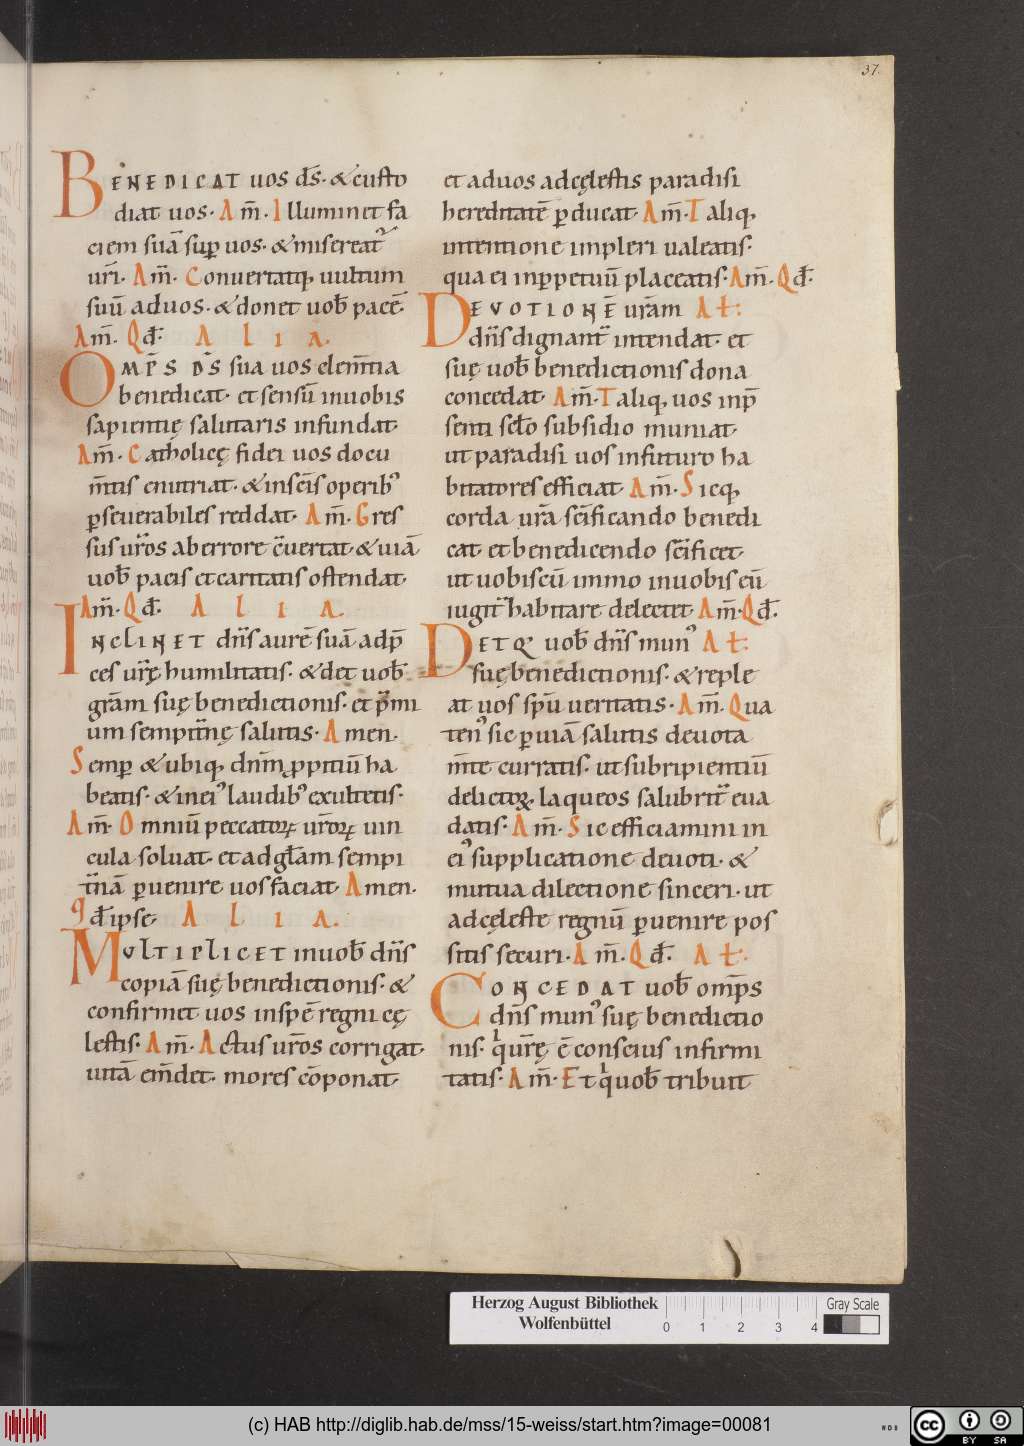 37.
BENEDICAT uos d̄s· & custo
diat uos· Am̄· Illuminet fa
ciem suā sup uos· & misereat᷑
ur̄i· Am̄· Conuertatq; uultum
suū ad uos· & donet uob̄ pacē·
Am̄· Qđ· ALIA·
OMP̄S D̄S sua uos clem̄tia
benedicat· et sensū in uobis
sapientię salutaris infundat·
Am̄· Catholicę fidei uos docu
m̄tis enutriat· & in sc̄is operib᾽
ꝑseuerabiles reddat· Am̄· Gres
sus ur̄os ab errore c̄uertat· & uiā
uob̄ pacis et caritatis ostendat·
Am̄· Qđ· ALIA·
INCLINET dn̄s aurē suā ad p̄
ces ur̄ę humilitatis· & det uob̄
gr̄am suę benedictionis· et p̄mi
um sempit̄nę salutis· Amen·
Semꝑ & ubiq; dn̄m ꝓpitiū ha
beatis· & in ei᾽ laudib᾽ exultetis·
Am̄· Omniū peccatoꝝ ur̄oꝝ uin
cula soluat· et ad gl̄am sempi
t̄nā ꝑuenire uos faciat· Amen·
qđ ipse· ALIA·
MVLTIPLICET in uob̄ dn̄s
copiā suę benedictionis· &
confirmet uos in spē regni cę
lestis· Am̄· Actus ur̄os corrigat·
uitā em̄det· mores cōponat·
et ad uos ad cęlestis paradisi
hereditatē ꝑducat· Am̄· Taliq;
intentione impleri ualeatis·
qua ei inꝑpetuū placeatis· Am̄· Qđ·
DEVOTIONĒ ur̄am Aƚ:
dn̄s dignant᷑ intendat· et
suę uob̄ benedictionis dona
concedat· Am̄· Taliq; uos in p̄
senti scl̄o subsidio muniat·
ut paradisi uos in futuro ha
bitatores efficiat· Am̄· Sicq;
corda ur̄a sc̄ificando benedi
cat· et benedicendo sc̄ificet·
ut uobiscū immo in uobis eū
iugit᷑ habitare delectet· Am̄· Qđ·
DETQ᾽ uob̄ dn̄s mun᾽ Aƚ:
suę benedictionis· & reple
at uos sp̄u ueritatis· Am̄· Qua
ten᾽ sic ꝑ uiā salutis deuota
m̄te curratis· ut subripientiū
delictoꝝ laqueos salubrit᷑ eua
datis· Am̄· Sic efficiamini in
ei᾽ supplicatione deuoti· &
mutua dilectione sinceri· ut
ad cęleste regnū ꝑuenire pos
sitis securi· Am̄· Qđ· Aƚ:
CONCEDAT uob̄ omp̄s
dn̄s mun᾽ suę benedictio
nis· qͥ ur̄ę ē conscius infirmi
tatis· Am̄· Et qͥ uob̄ tribuit
Herzog August Bibliothek
Wolfenbüttel
0 1 2 3 4
Gray Scale
(c) HAB http://diglib.hab.de/mss/15-weiss/start.htm?image=00081
cc BY SA